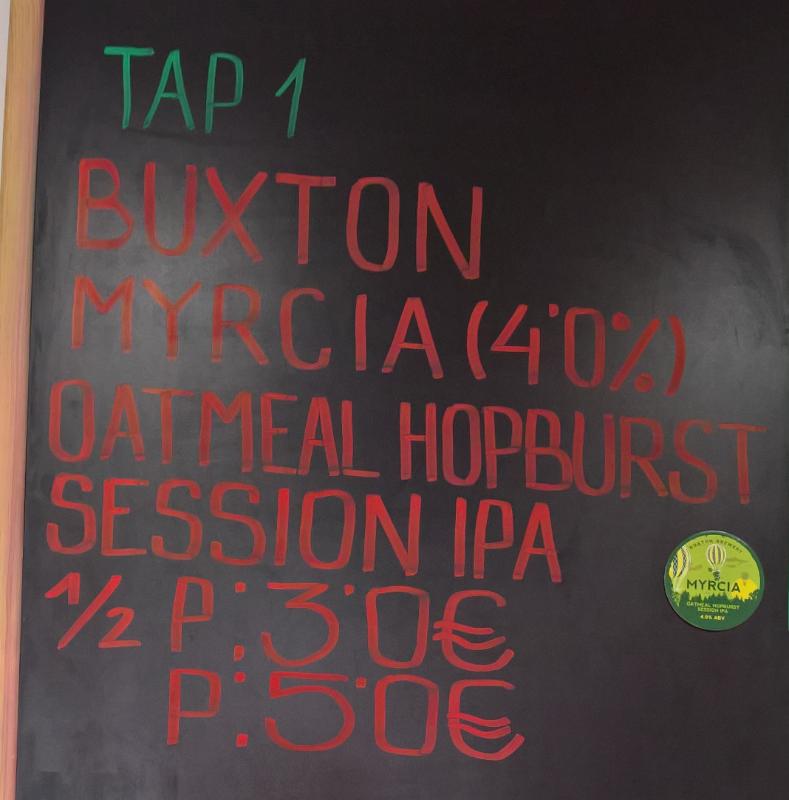 TAP 1
BUXTON
MYRCIA (4'0%)
OATMEAL HOPBURST
SESSION IPA
1/2 P: 3'0€
P: 5'0€
BUXTON BREWERY
MYRCIA
OATMEAL HOPBURST
SESSION IPA
4.0% ABV